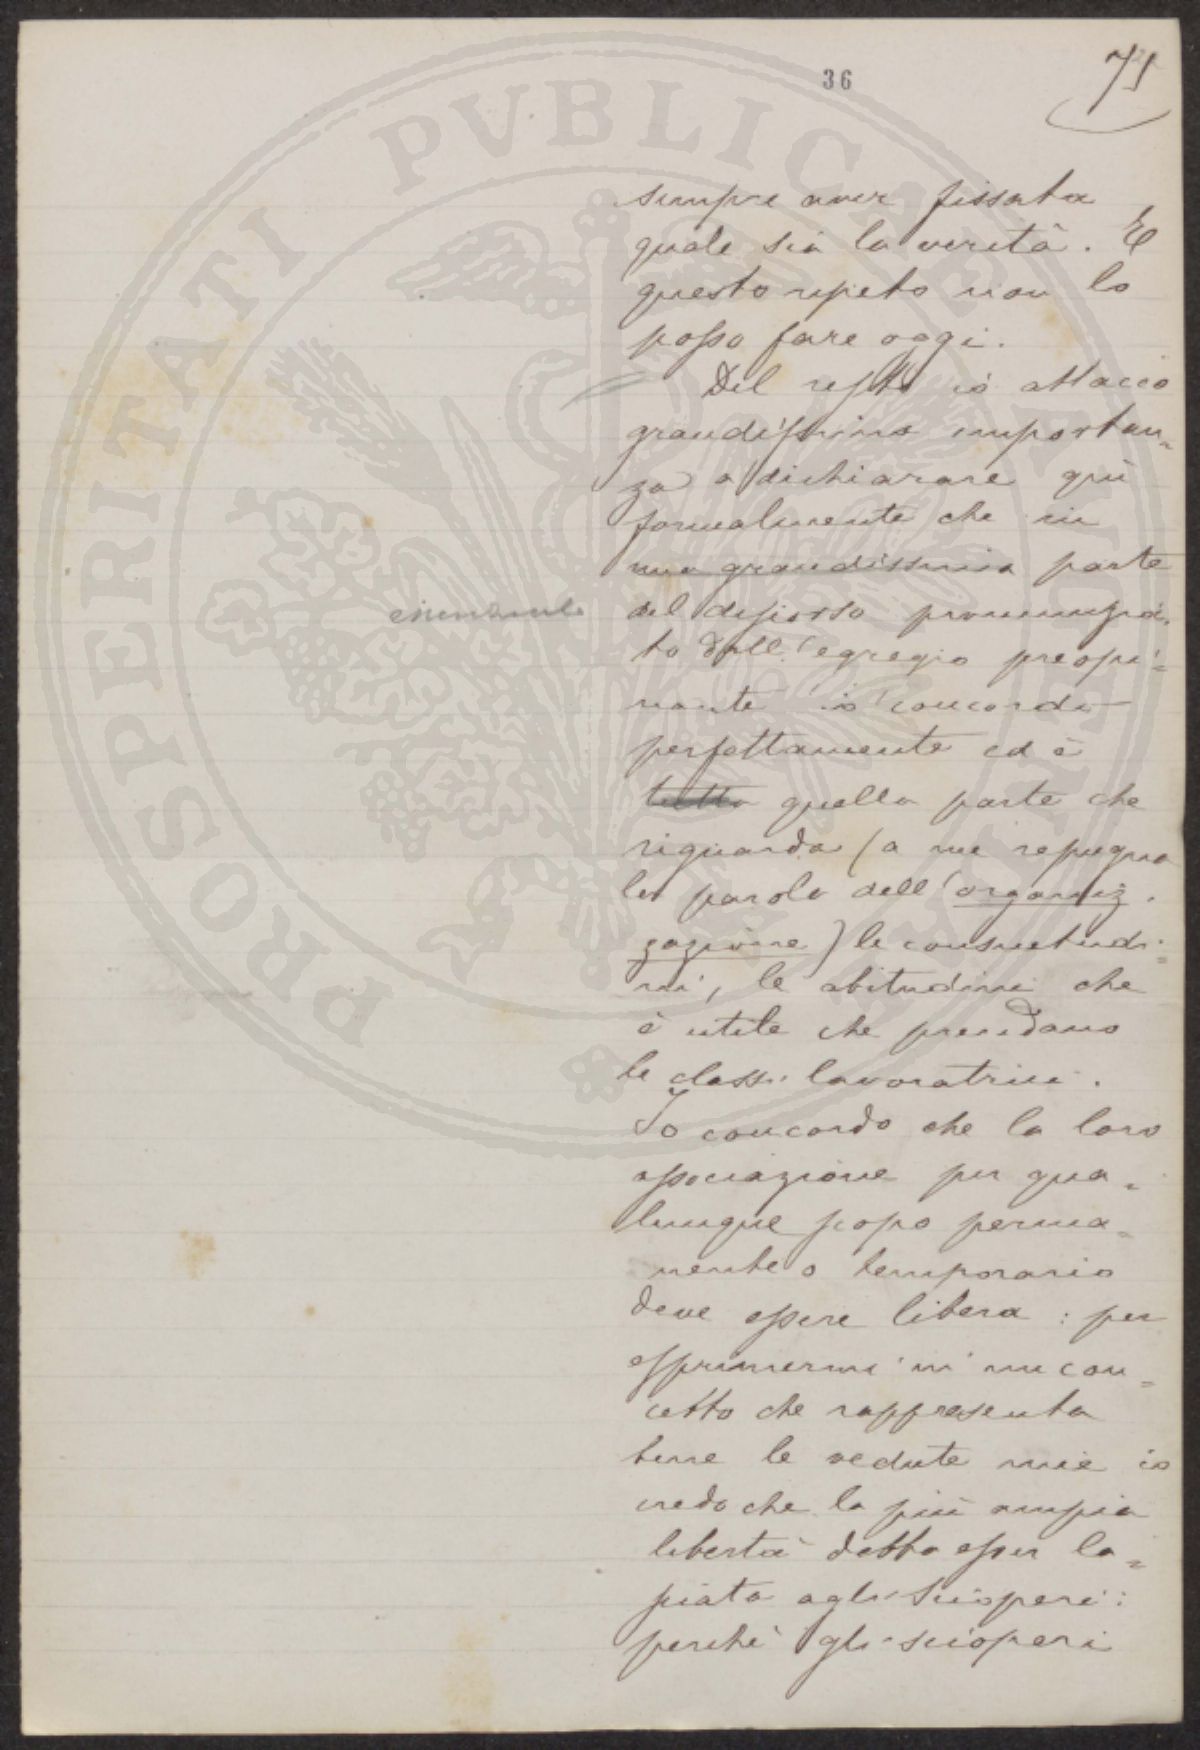 36
71
sempre aver fissata
quale sia la verità. E
questo repeto non lo
posso fare oggi.
Del resto io attacco
grandissima importan=
za a dichiarare qui
formalmente che in
una grandissima parte
del discorso pronunzia=
to dall'egregio preopi=
nante io concordo
perfettamente ed è
tutta quella parte che
riguarda (a me repugna
la parola dell'organiz=
zazione) le consuetudi=
ni, le abitudini che
è utile che prendano
le classi lavoratrici.
Io concordo che la loro
associazione per qua=
lunque scopo perma=
nente o temporario
deve essere libera: per
esprimermi in un con=
cetto che rappresenta
bene le vedute mie io
credo che la più ampia
libertà debba esser la=
sciata agli scioperi:
perchè gli scioperi
PROSPERITATI PVBLICAE